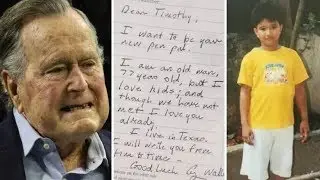 Dear Timothy,
I want to be your
new pen pal.
I am an old man,
77 years old, but I
love kids; and
though we have not
met I love you
already.
I live in Texas.
I will write you from
time to time -
Good luck